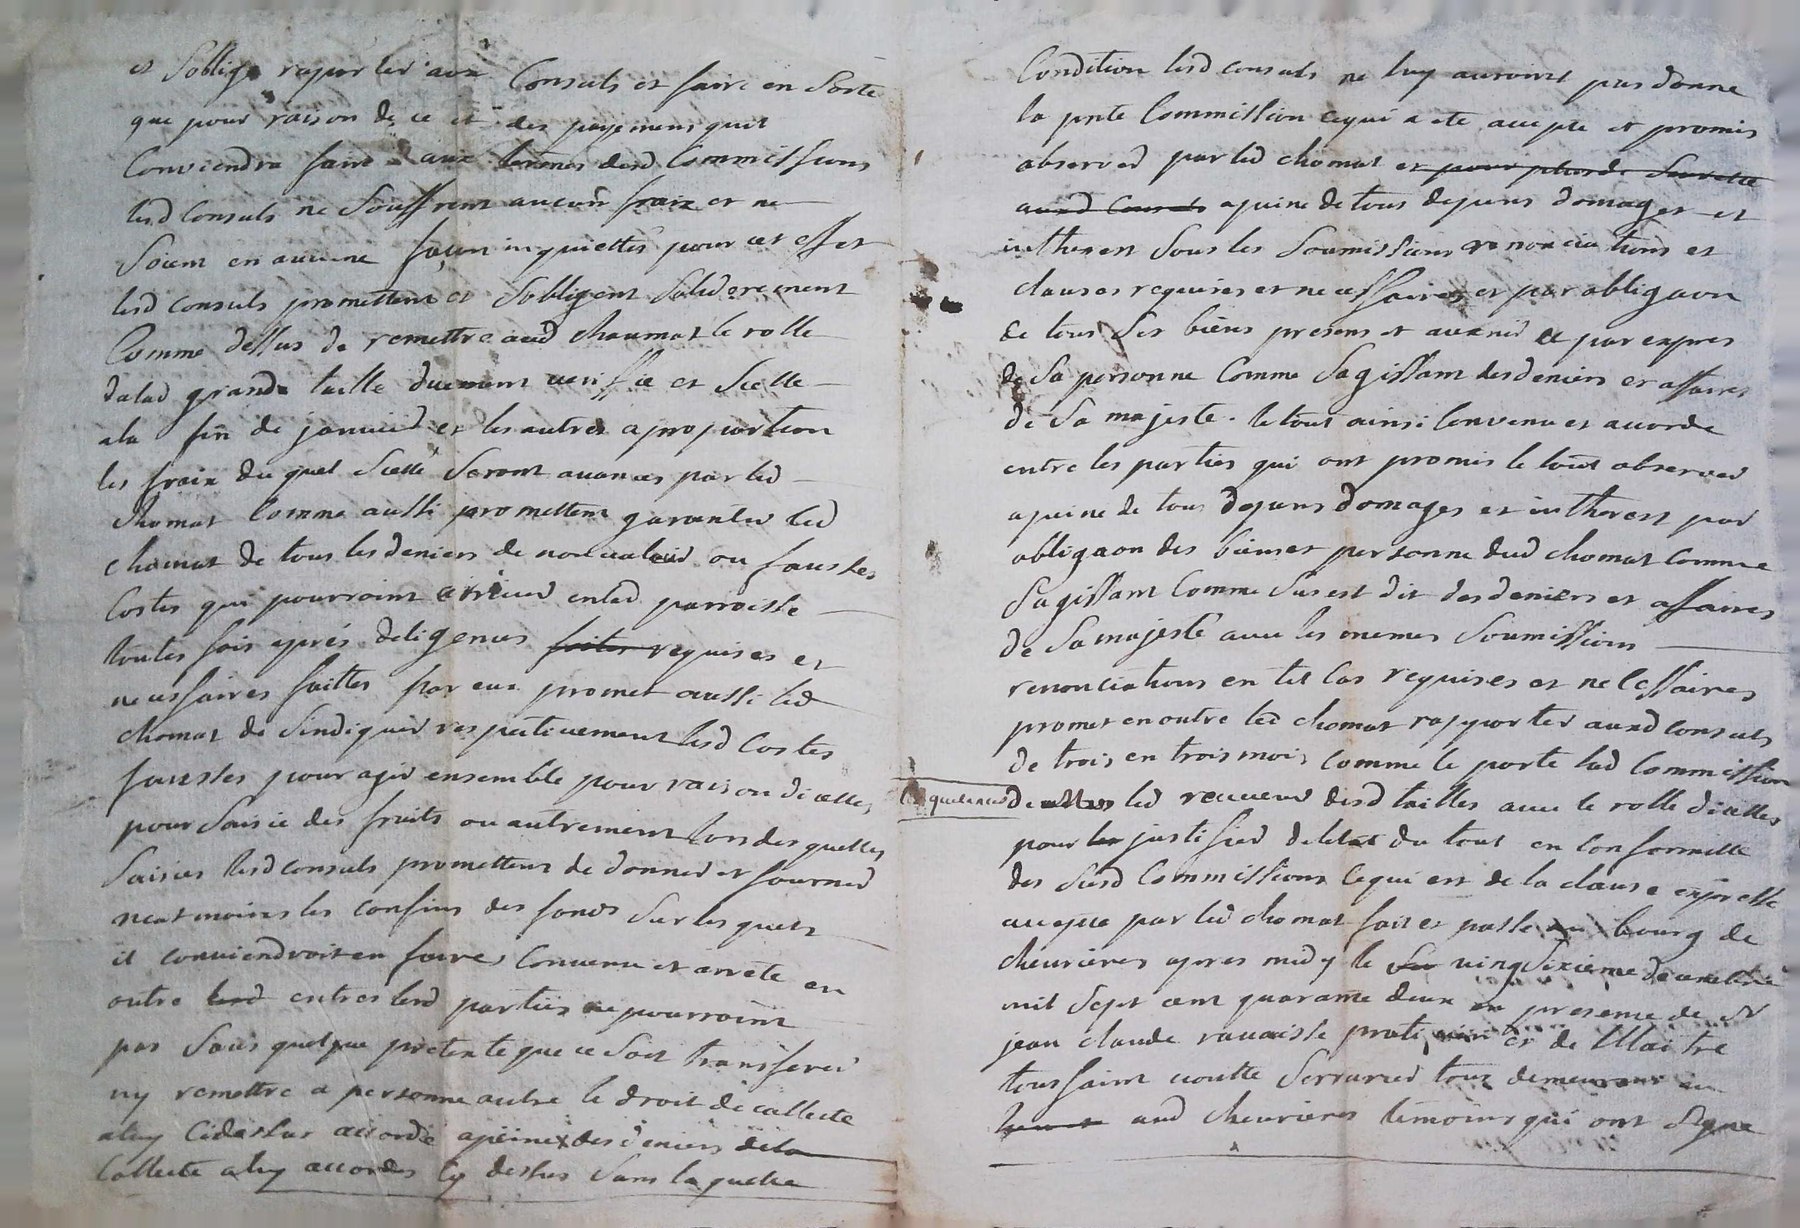 et Soblige raporter aux Consuls et faire en Sorte
que pour raison de ce et des payemens quil
Conviendra faire aux termes desd Commissions
lesd Consuls ne Souffrent aucun fraix et ne
Soient en aucune façon inquiettés pour cet effet
lesd consuls promettent et Sobligent Soliderement
Comme dessus de remettre aud chaumat le rolle
dalad grande taille duement veriffié et Scelle
ala fin de janvied et les autres a proportion
les fraix du quel Scellé Seront avances par led
Chomat Comme aussi promettent garantir led
chomat de tous les deniers de non valeur ou fausses
Costes qui pourroint arriver enlad parroisse
toutes fois aprés deligences faites requises et
necessaires faittes par eux promet aussi led
chomat de Sindiquer respectivement lesd Costes
fausses pour agir ensemble pour raison dicelles
pour Saisie des fruits ou autrement lors desquelles
Saisies lesd consuls promettent de donner et fournir
neatmoins les confins des fonds Sur lesquels
il conviendroit en faire, Convenu et arrêté en
outre lesd entres lesd parties ne pourroint
pas Sous quelque pretexte que ce Soit transferer
ny remettre a personne autre le droit de collecte
aluy Cidessus accordé apeine des deniers dela
Collecte aluy accordés Cy dessus Sans laquelle
Condition lesd consuls ne luy auroint pas donne
la pnte Commission cequi a ete accepte et promis
observer par led chomat et pour plus de Seurette
auxd Consuls apeine de tous depens domages et
intherest Sous les Soumissions renonciations et
clauses requises et necessaires et par obligaon
de tous Ses biens presens et avenir et par expres
de Sa personne Comme Sagissant des deniers et affaires
de Sa majesté. le tout ainsi Convenu et accorde
entre les parties qui ont promis le tout observer
apeine de tous depans domages et intherest par
obligaon des biens et personne dud chomat comme
Sagissant Comme Sus est dit des deniers et affaires
de Samajesté avec les memes Soumissions
renonciations en tel Cas requises et necessaires
promet en outre led chomat rapporter auxd consuls
de trois en trois mois Comme le porte lad Commission
led receveur desd tailles avec le rolle dicelles
pour les justifier deletat du tout en Conformitté
des Susd Commissions Cequi est de la clause expresse
accepté par led chomat fait et passe au bourg de
chevrieres apres midy le vingt Sixieme decembre
mil Sept cent quarante deux en presence de Sr
jean claude ravaisse praticien et de Maitre
toussaint Serrurier tous demeurant au
aud chevrieres temoins qui ont Signe